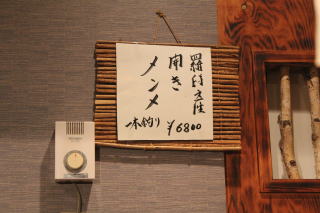 羅臼産
開き
メンメ
一本釣り ¥6800